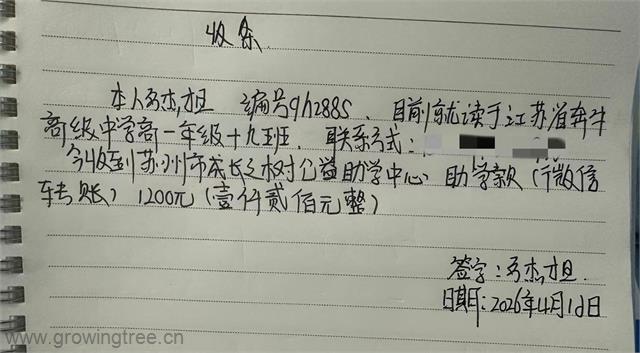 收条
本人 编号gh2885、目前就读于江苏省奔牛
高级中学高一年级十九班、联系方式:
今收到苏州市成长之树公益助学中心 助学款(微信
转账)1200元(壹仟贰佰元整)
签字:
日期:2026年4月1日
www.growingtree.cn